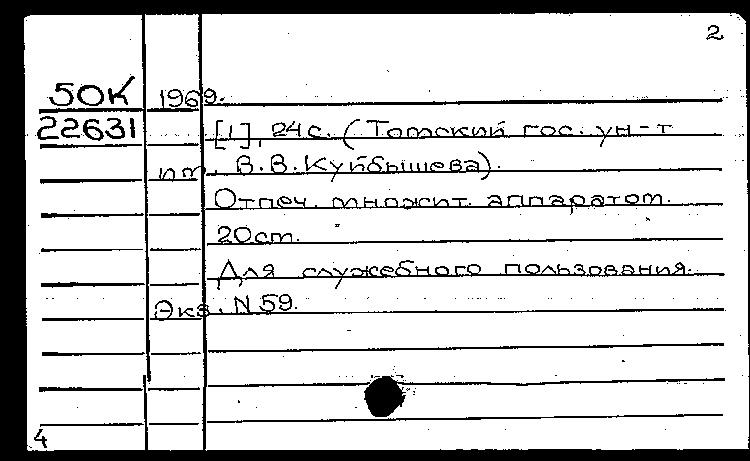 2
50К 1969.
22631 [1], 24с. (Томский гос. ун-т
им. В.В.Куйбышева).
Отпеч. множит. аппаратом.
20см.
Для служебного пользования.
Экз. N 59.
4